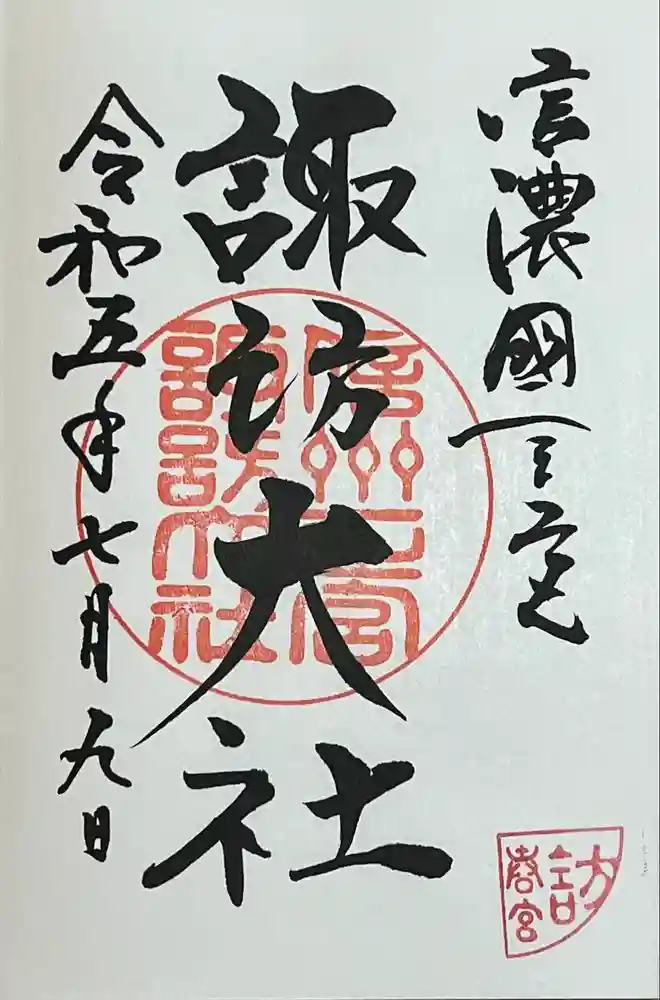 信濃國一之宮
諏訪大社
令和五年七月九日
信州一宮
諏訪大社
訪
春宮